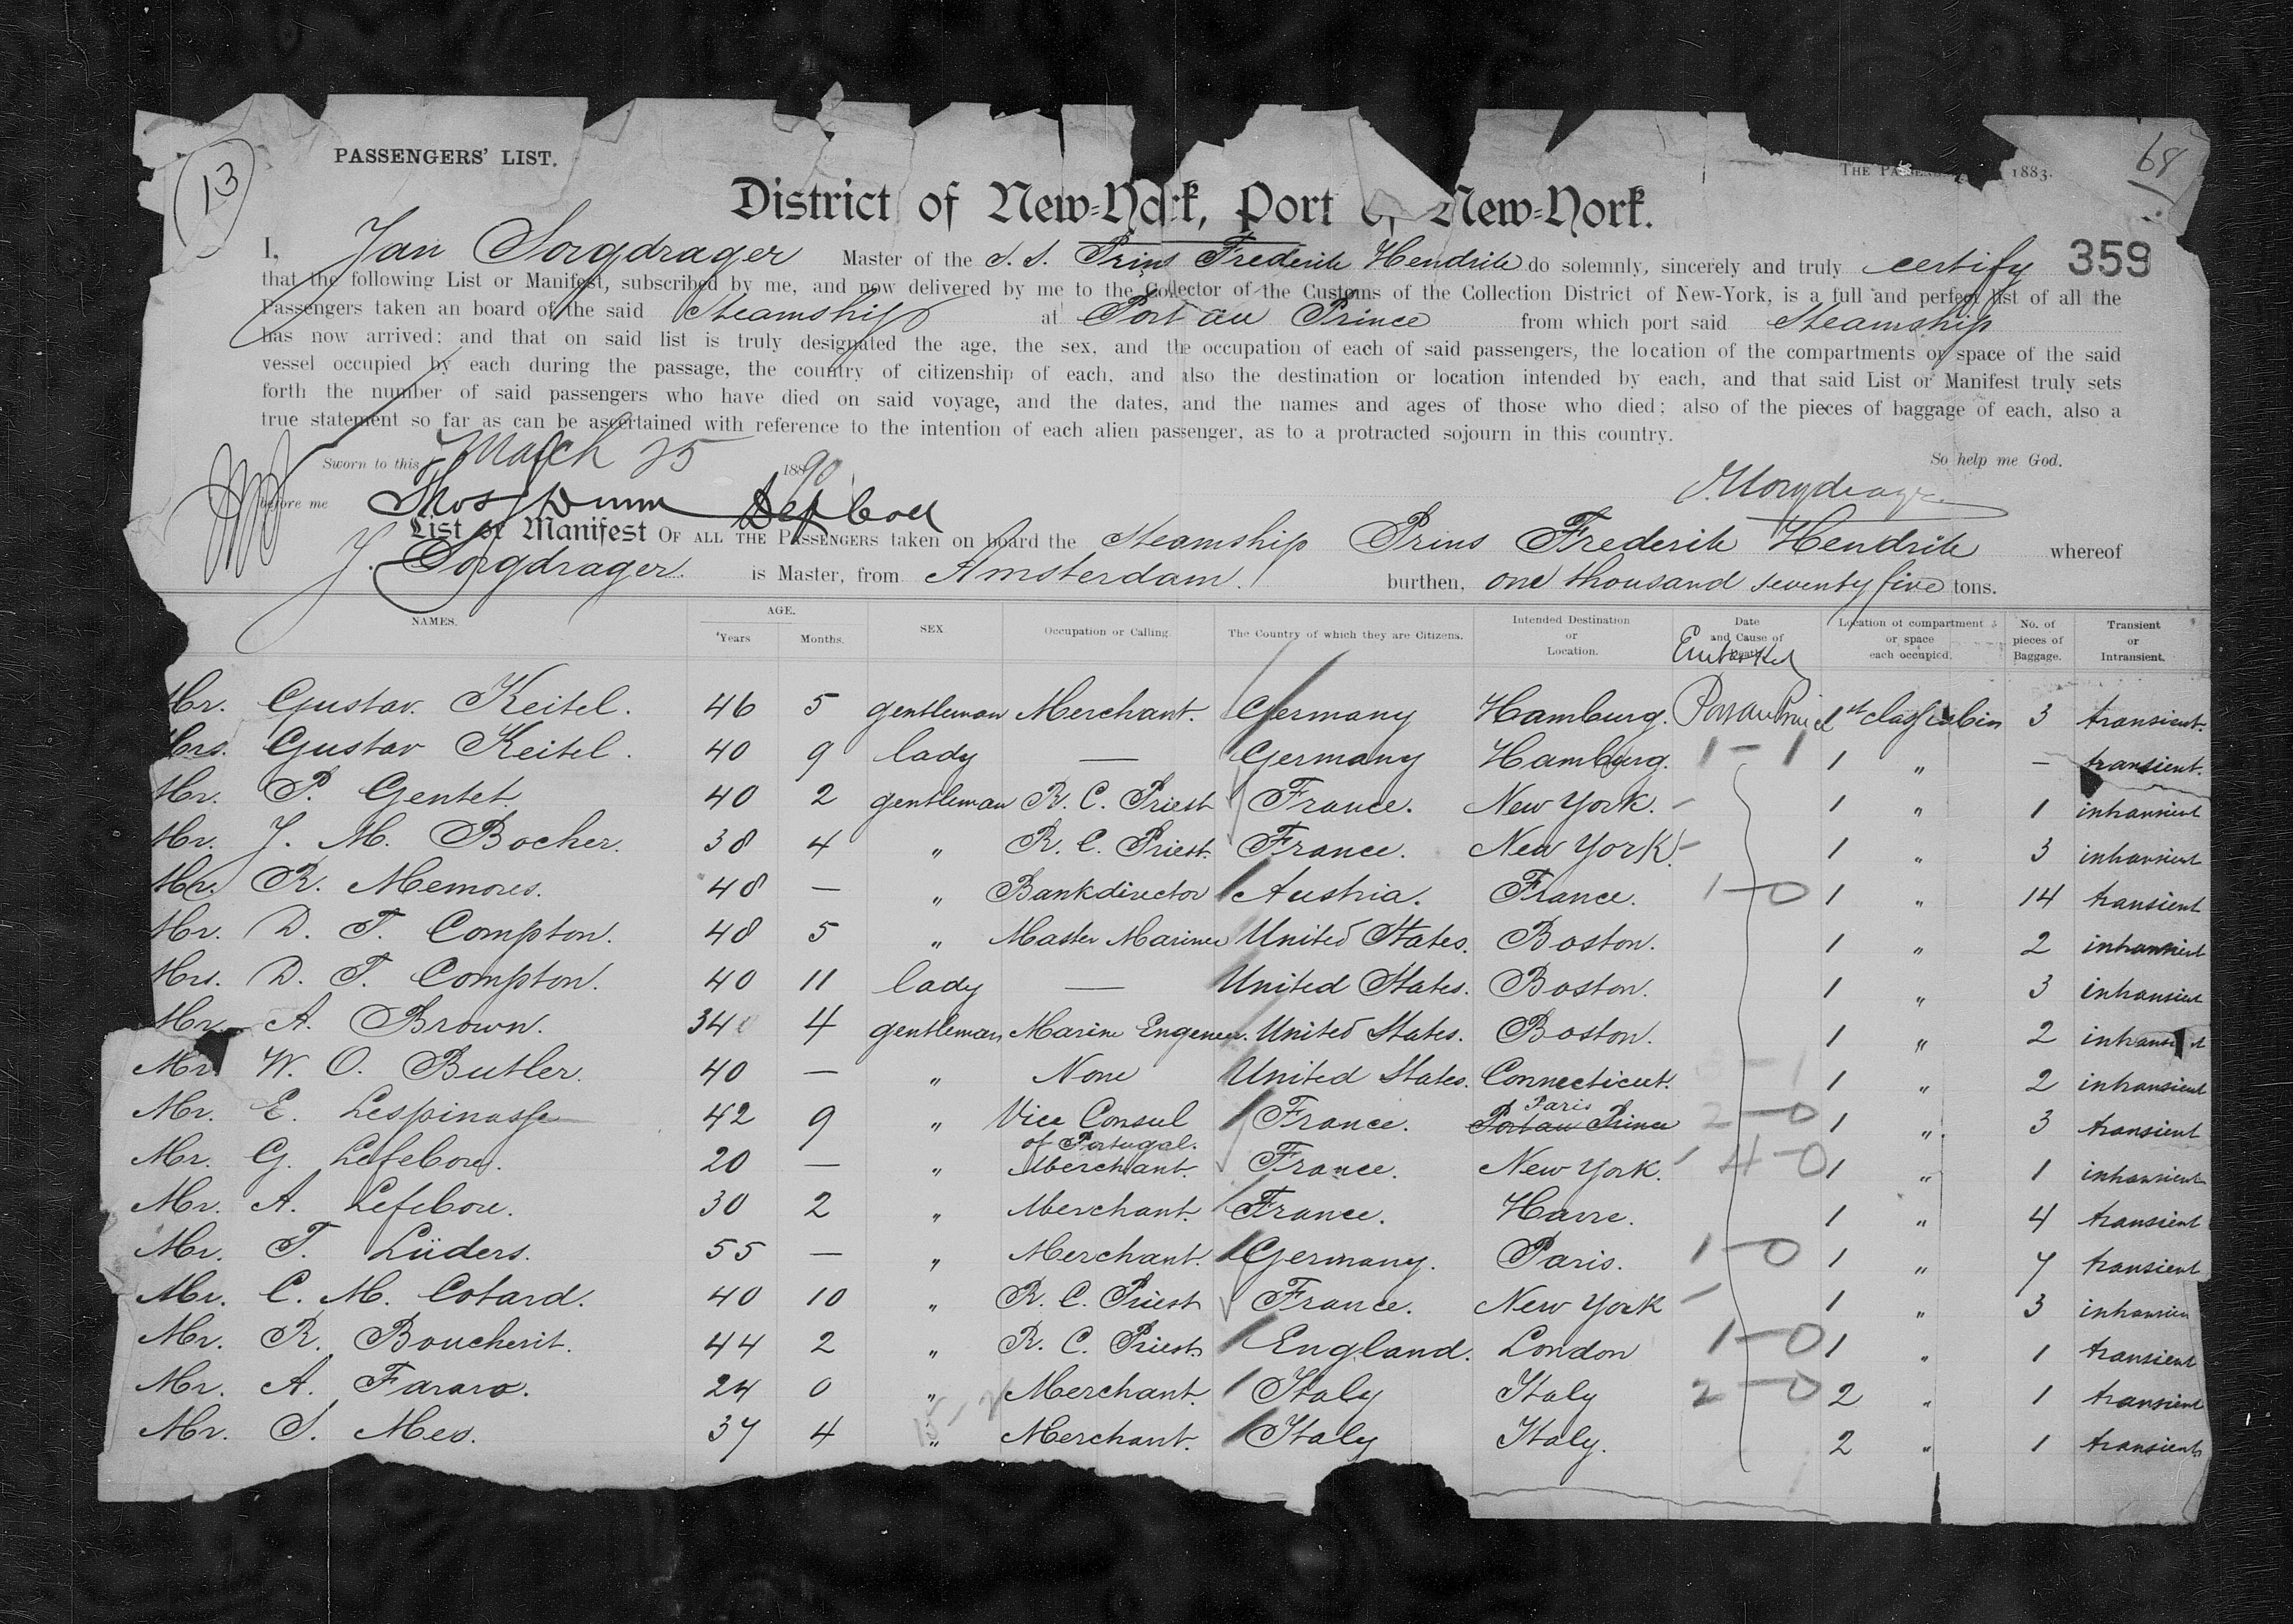 13
PASSENGERS' LIST.
THE 1883.
68
District of New-York, Port of New-York.
359
I, Jan Sorgdrager Master of the S. S. Prins Frederik Hendrik do solemnly, sincerely and truly certify
that the following List or Manifest, subscribed by me, and now delivered by me to the Collector of the Customs of the Collection District of New-York, is a full and perfect list of all the
Passengers taken an board of the said Steamship at Port au Prince from which port said Steamship
has now arrived: and that on said list is truly designated the age, the sex, and the occupation of each of said passengers, the location of the compartments or space of the said
vessel occupied by each during the passage, the country of citizenship of each, and also the destination or location intended by each, and that said List or Manifest truly sets
forth the number of said passengers who have died on said voyage, and the dates, and the names and ages of those who died; also of the pieces of baggage of each, also a
true statement so far as can be ascertained with reference to the intention of each alien passenger, as to a protracted sojourn in this country.
Sworn to this March 25 1890 So help me God.
before me Thos J Dunn Dep Coll J Sorgdrager
List or Manifest OF ALL THE PASSENGERS taken on board the Steamship Prins Frederik Hendrik whereof
J. Sorgdrager is Master, from Amsterdam. burthen, one thousand seventy five tons.
NAMES. AGE. Years Months. SEX. Occupation or Calling. The Country of which they are Citizens. Intended Destination or Location. Date and Cause of Embarked Location of compartment or space each occupied. No. of pieces of Baggage. Transient or Intransient.
Mr. Gustav. Keitel. 46 5 gentleman Merchant. Germany Hamburg. Port au Prince 1st class cabin 3 transient.
Mrs. Gustav Keitel. 40 9 lady — Germany Hamburg. 1-1 1 " — transient.
Mr. P. Gentet. 40 2 gentleman R. C. Priest France. New York. 1 " 1 intransient
Mr. J. M. Bocher. 38 4 " R. C. Priest. France. New York. 1 " 3 intransient
Mr. R. Memores. 48 — " Bankdirector Austria. France. 1-0 1 " 14 transient
Mr. D. T. Compton. 48 5 " Master Mariner United States. Boston. 1 " 2 intransient
Mrs. D. T. Compton. 40 11 lady — United States. Boston. 1 " 3 intransient
Mr. A. Brown. 34 4 gentleman Marine Engeneer. United States. Boston. 1 " 2 intransient
Mr. W. O. Butler. 40 — " None United States. Connecticut. 1 " 2 intransient
Mr. E. Lespinasse 42 9 " Vice Consul of Portugal. France. Port au Prince Paris 2-0 1 " 3 transient
Mr. G. Lefebore. 20 — " Merchant. France. New York. 4-0 1 " 1 intransient
Mr. A. Lefebore. 30 2 " Merchant. France. Havre. 1 " 4 transient
Mr. T. Lüders. 55 — " Merchant. Germany. Paris. 1-0 1 " 7 transient
Mr. C. M. Cotard. 40 10 " R. C. Priest France. New York 1 " 3 intransient
Mr. R. Boucherit. 44 2 " R. C. Priest England. London 1-0 1 " 1 transient
Mr. A. Fararo. 24 0 " Merchant. Italy Italy 2-0 2 " 1 transient
Mr. S. Mes. 37 4 " Merchant. Italy Italy. 2 " 1 transient